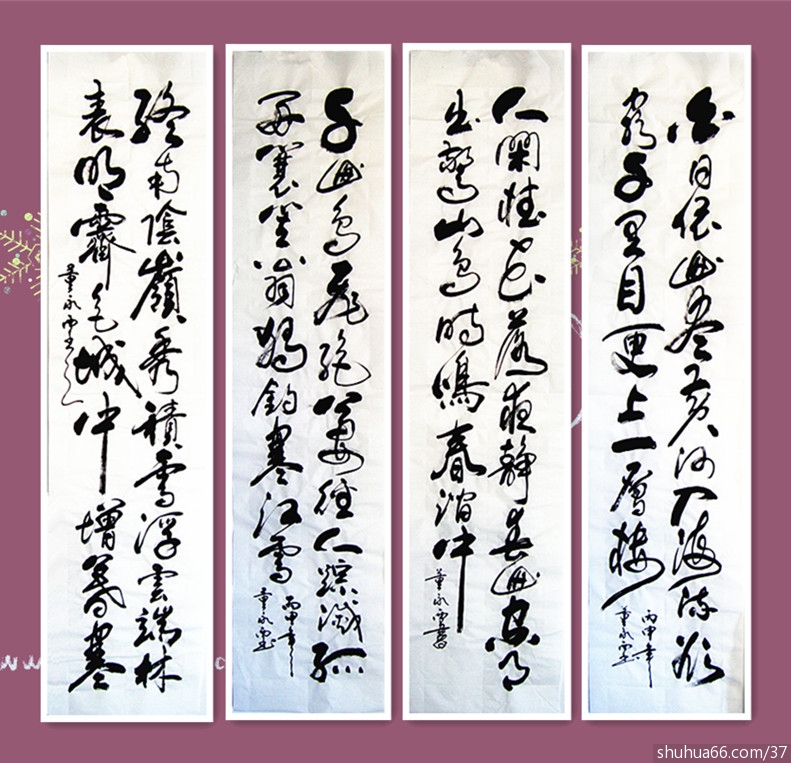 白日依山尽黄河入海流欲
穷千里目更上一層楼
丙申年
董永雲
人閑桂花落夜静春山空月
出驚山鳥時鳴春澗中
董永雲書
千山鳥飛絕萬徑人踪滅孤
舟蓑笠翁獨釣寒江雪
丙申年
董永雲
終南陰嶺秀積雪浮雲端林
表明霽色城中增暮寒
董永雲
shuhua66.com/37